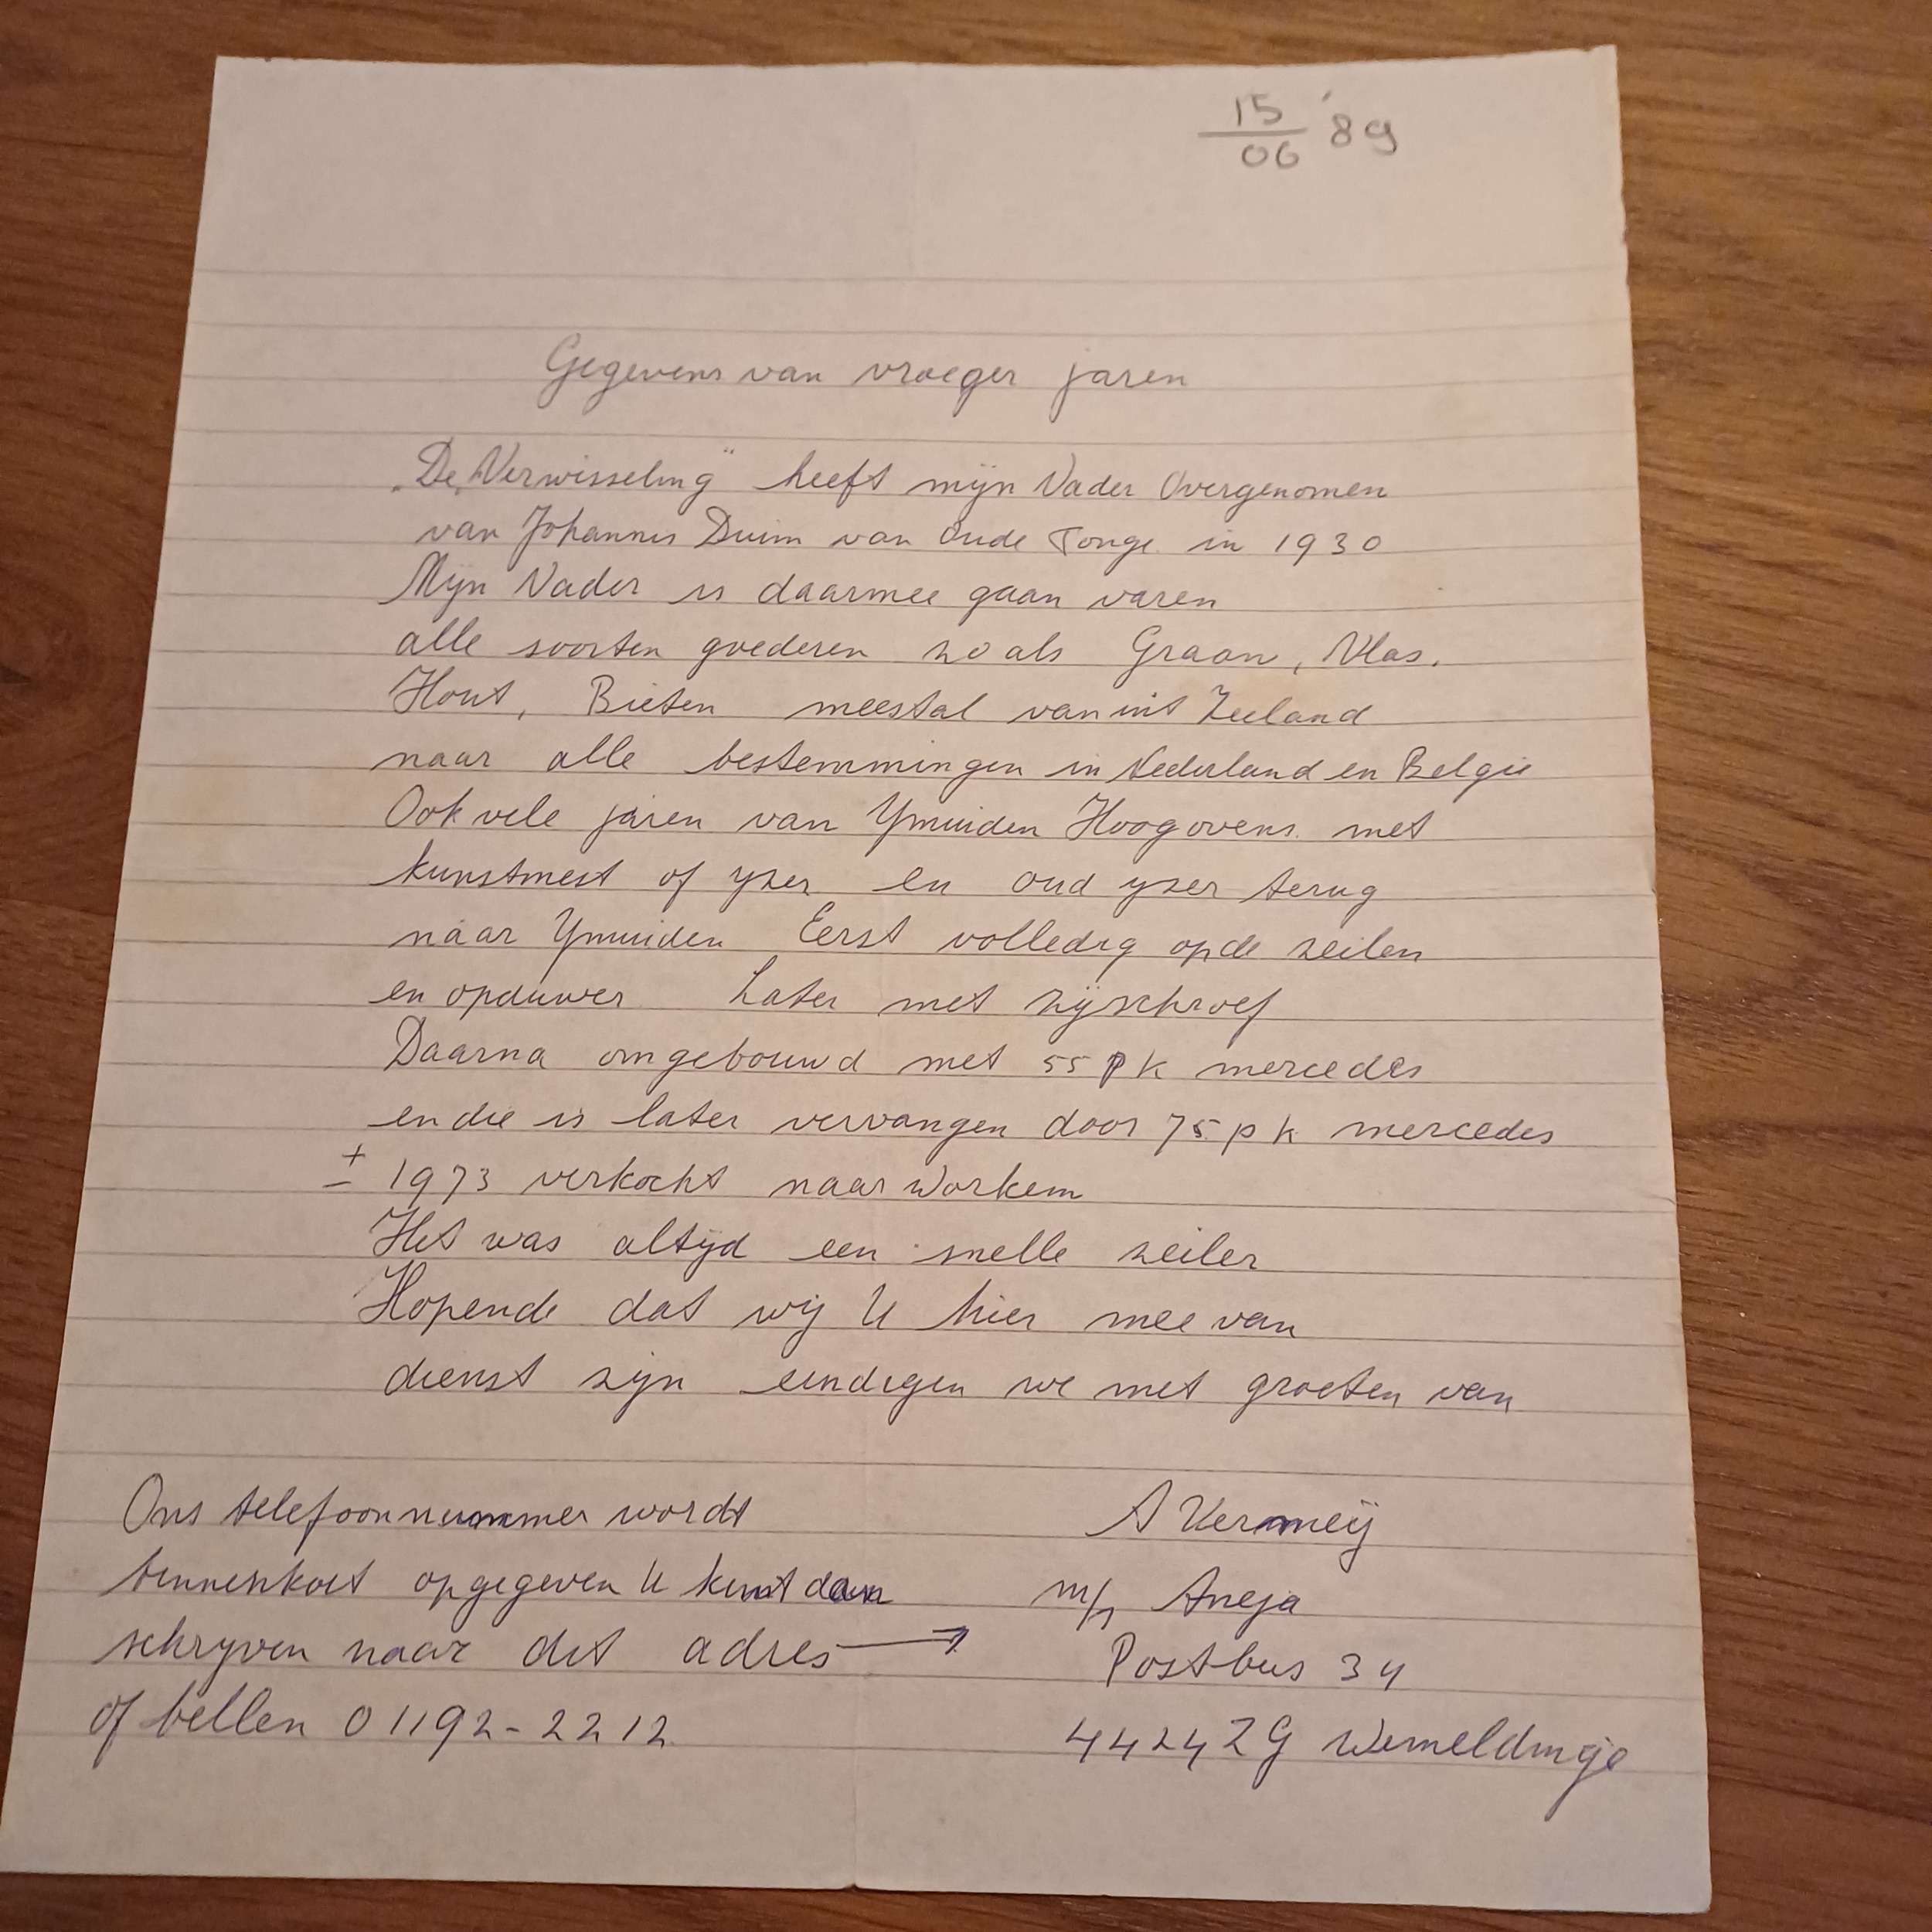 15/06 '89
Gegevens van vroeger jaren
"De "Verwisseling" heeft mijn Vader Overgenomen
van Johannis Duim van Oude Tonge in 1930
Mijn Vader is daarmee gaan varen
alle soorten goederen zo als Graan, Vlas,
Hout, Bieten meestal vanuit Zeeland
naar alle bestemmingen in Nederland en Belgie
Ook vele jaren van Ymuiden Hoogovens met
kunstmest of yzer en oud yzer terug
naar Ymuiden Eerst volledig op de zeilen
en opduwer Later met zijschroef
Daarna omgebouwd met 55 pk mercedes
en die is later vervangen door 75 pk mercedes
± 1973 verkocht naar Workem
Het was altijd een snelle zeiler
Hopende dat wij U hier mee van
dienst zijn eindigen we met groeten van
Ons telefoonnummer wordt
binnenkort opgegeven U kunt dan
schryven naar dit adres →
of bellen 01192-2212
A Vermeij
m/s Aneja
Postbus 34
4424ZG Wemeldinge